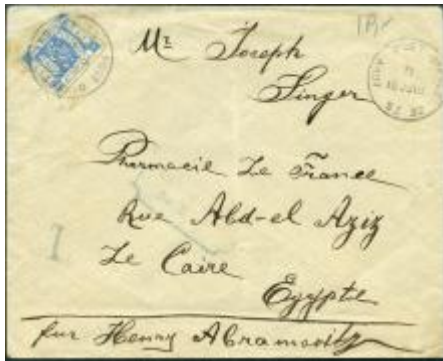 Mr Joseph
Singer
Pharmacie Le France
Rue Abd-el Aziz
Le Caire
Egypte
für Henry Abramovitz